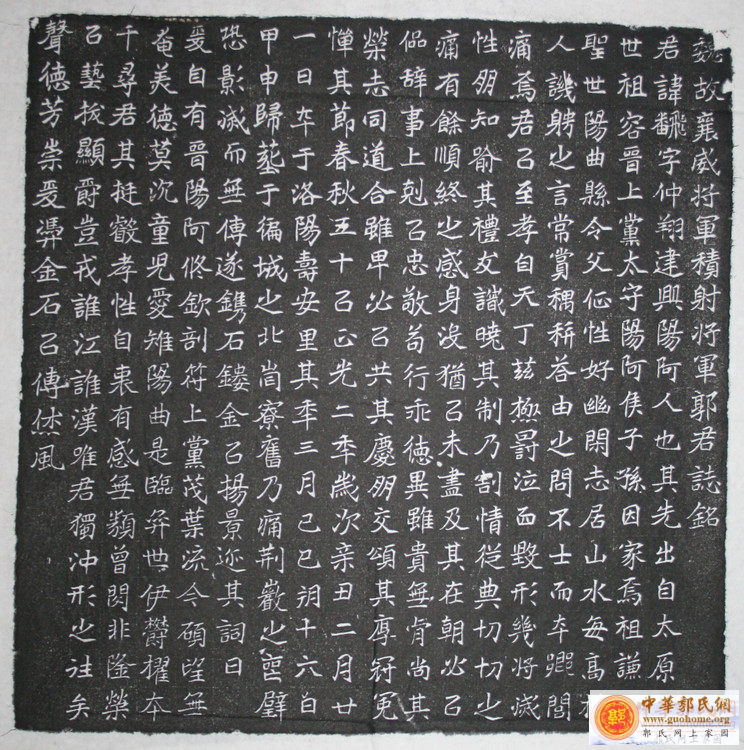 魏故襄威将軍積射将軍郭君誌銘
君諱翻字仲翔建興陽阿人也其先出自太原
世祖容晋上黨太守陽阿侯子孫因家焉祖謙
聖世陽曲縣令父㑊性好幽閑志居山水每高
人譏聘之言常賞稠秝荅由之問不士而卒遐閻
痛焉君㠯至孝自天丁兹極罸泣血毀形幾将滅
性朋知喻其禮女識曉其制乃割情從典切切之
痛有餘順終之感身没猶㠯未盡及其在朝必㠯
偘辞事上剋㠯忠敬苟行乖德異雖貴無肯尚其
榮志同道合雖卑必㠯共其慶朋交頌其厚冠冕
憚其節春秋五十㠯正光二年歲次亲丑二月廿
一日卒于洛陽壽安里其年三月己巳朔十六日
甲申歸塟于徧城之北尚寮舊乃痛荆巖之䘮璧
恐影滅而無傳遂鐫石鏤金㠯揚景迹其詞曰
爰自有晋陽阿攸欽剖符上黨茂葉流今碩望無
奄美德莫沉童児愛雉陽曲是臨弈世伊欝擢本
千尋君其挺㲉孝性自衷有感無纇曾閔非隆榮
㠯藝拔顯爵豈戎誰江誰漢唯君獨冲形之往矣
聲德芳崇爰馮金石㠯傳烋風
中華郭氏網
www.guohome.org
郭氏网上家园